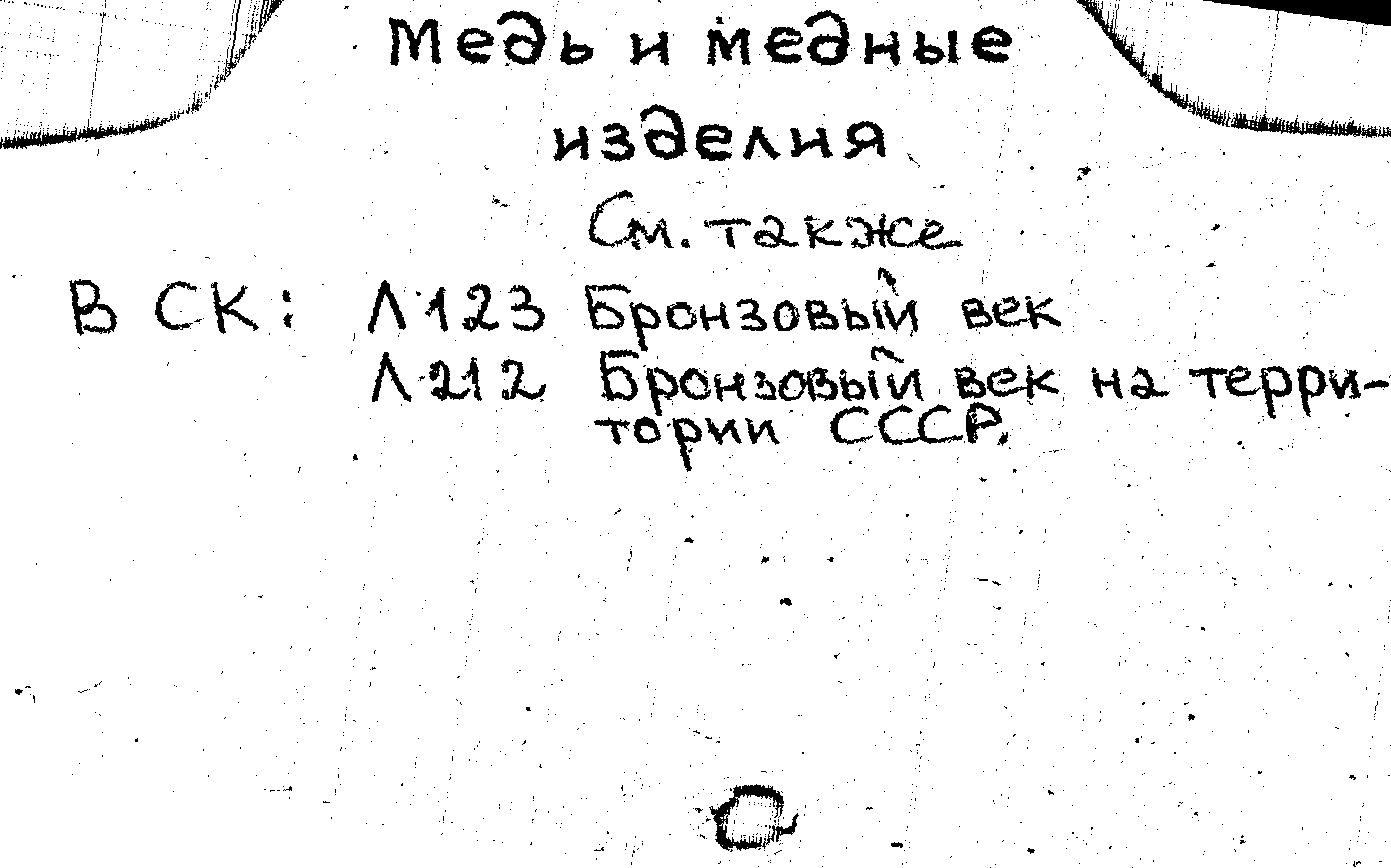 Медь и медные
изделия
См. также
В СК: Л123 Бронзовый век
Л212 Бронзовый век на терри-
тории СССР.